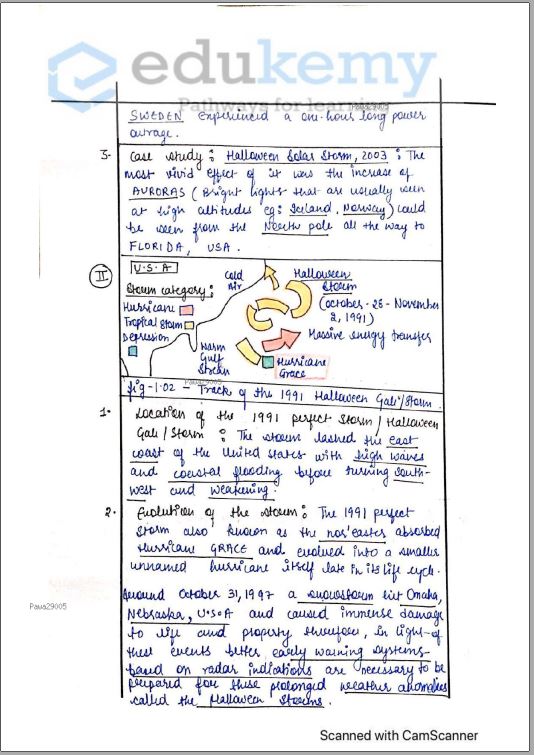 edukemy
Pathways for learning
Pava29005
SWEDEN experienced a one-hour long power
outrage.
3- Case study : Halloween Solar Storm, 2003 : The
most vivid effect of it was the increase of
AURORAS ( Bright lights that are usually seen
at high altitudes eg: Iceland, Norway) could
be seen from the North pole all the way to
FLORIDA, USA.
II
U.S.A
Storm category :
Hurricane
Tropical Storm
Depression
Cold
Air
Halloween
Storm
(October-28-November
2, 1991)
Massive energy transfer
Warm
Gulf
Stream
Hurricane
Grace
Pava29005
fig-1.02 - Track of the 1991 Halloween Gale/Storm
1- Location of the 1991 perfect storm / Halloween
Gale / Storm : The storm lashed the east
coast of the United States with high waves
and coastal flooding before turning south-
west and weakening.
2- Evolution of the storm : The 1991 perfect
storm also known as the nor'easter absorbed
Hurricane GRACE and evolved into a smaller
unnamed hurricane itself late in its life cycle.
Around October 31, 1997 a snowstorm hit Omaha,
Nebraska, U.S.A and caused immense damage
to life and property therefore, in light of
these events better early warning systems
based on radar indications are necessary to be
prepared for these prolonged weather anomalies
called the Halloween Storms.
Pava29005
Scanned with CamScanner